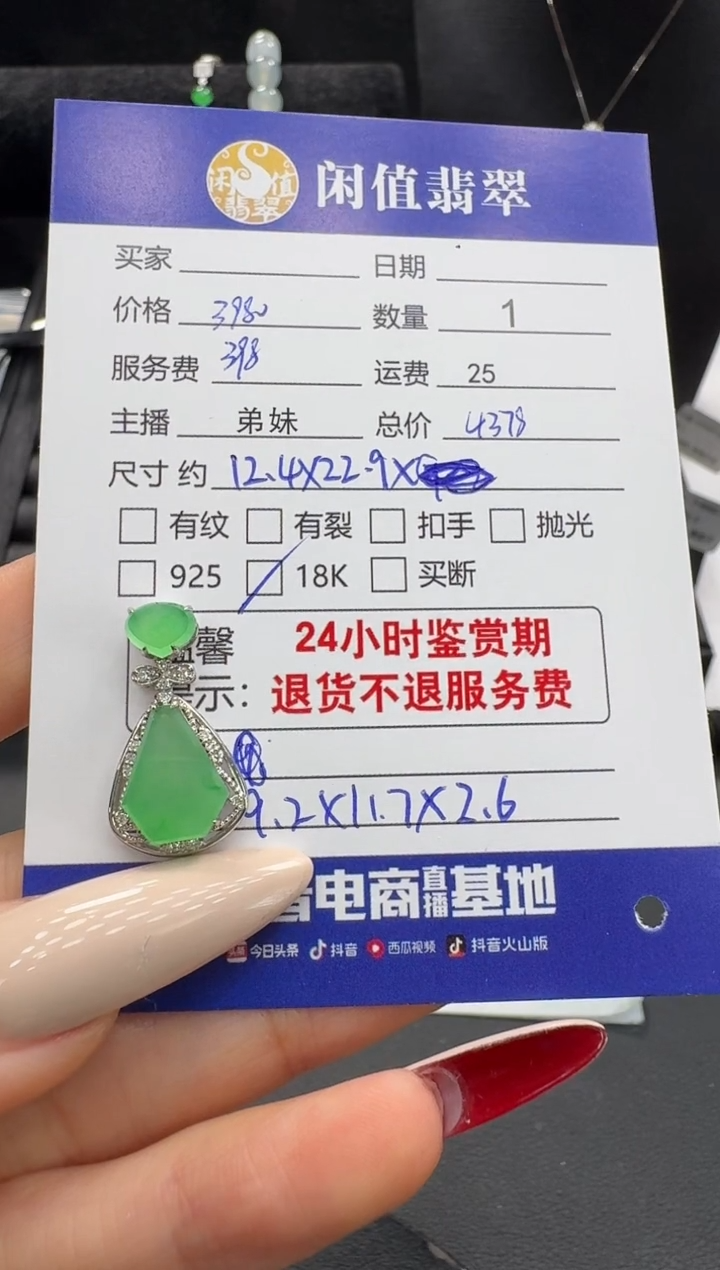 闲值翡翠 闲值翡翠
买家 日期
价格 3980 数量 1
服务费 398 运费 25
主播 弟妹 总价 4378
尺寸 约 12.4X22.9X
有纹 有裂 扣手 抛光
925 18K 买断
馨 24小时鉴赏期
示: 退货不退服务费
9.2X11.7X2.6
电商直播基地
头条 今日头条 抖音 西瓜视频 抖音火山版